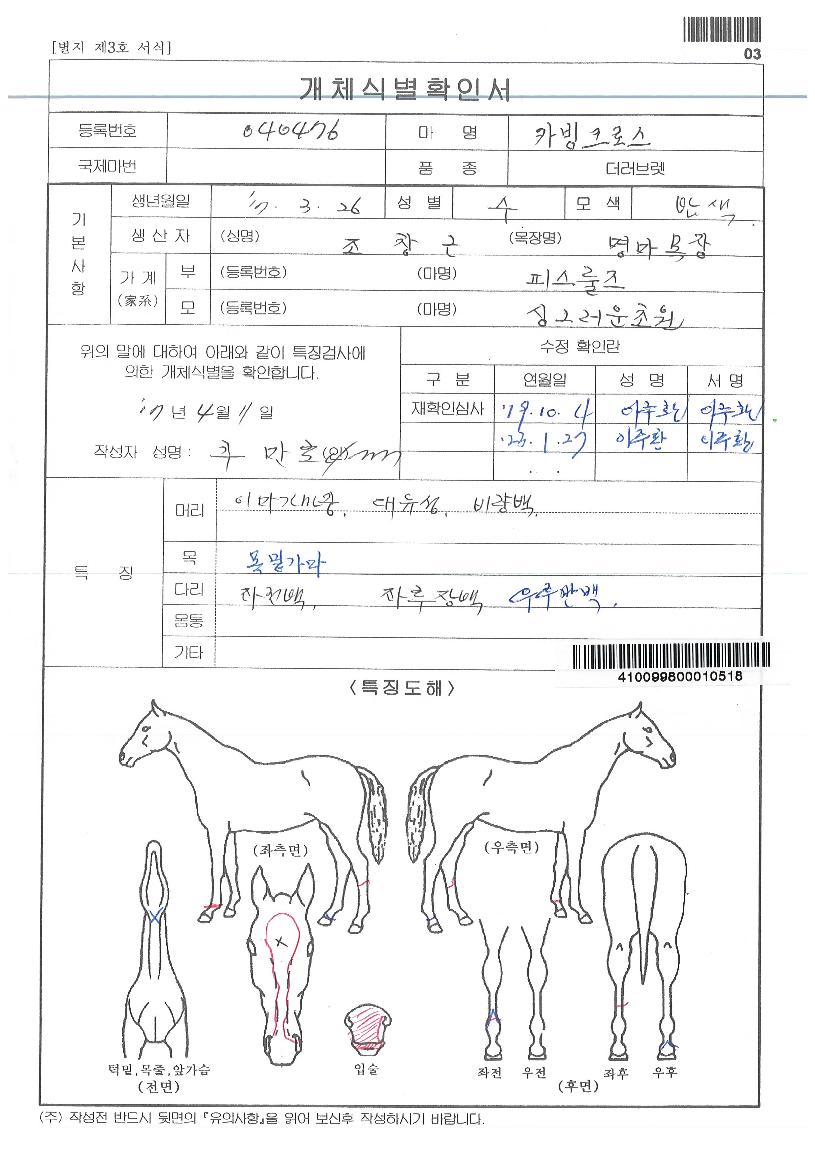 [별지 제3호 서식]
03
개체식별확인서
등록번호 040476 마 명 카빙크로스
국제마번 품 종 더러브렛
기본사항
생년월일 '17. 3. 26 성 별 수 모 색 밤색
생 산 자 (성명) 조 창 근 (목장명) 명마목장
가 계 (家系) 부 (등록번호) (마명) 피스룰즈
모 (등록번호) (마명) 싱그러운초원
위의 말에 대하여 아래와 같이 특징검사에
의한 개체식별을 확인합니다.
'17년 4월 11일
작성자 성명 :
수정 확인란
구 분 연월일 성 명 서 명
재확인심사 '19. 10. 4 이주환 이주환
'23. 1. 27 이주환 이주환
특 징
머리 대유성, 비량백
목 목밑가마
다리 좌전백, 좌후장백 우후반백.
몸통
기타
410099800010518
<특징도해>
(좌측면) (우측면)
턱밑, 목줄, 앞가슴
(전면)
입술
좌전 우전 좌후 우후
(후면)
(주) 작성전 반드시 뒷면의 『유의사항』을 읽어 보신후 작성하시기 바랍니다.